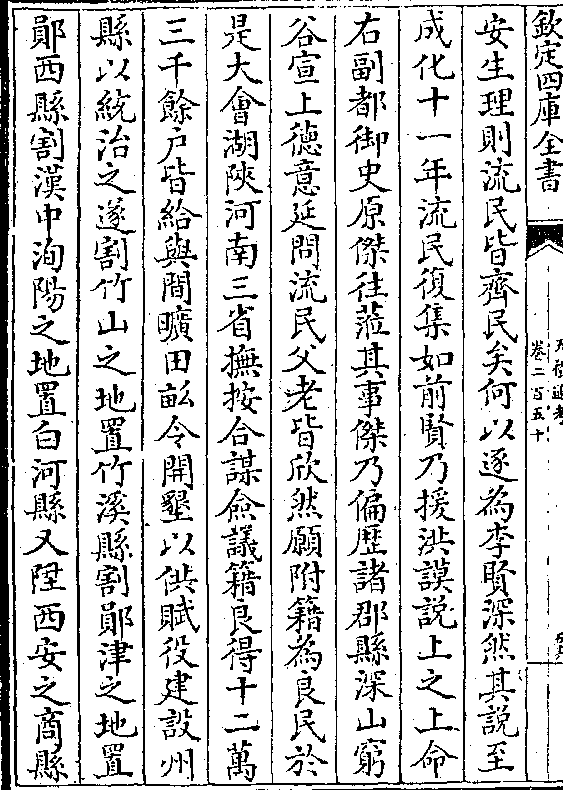 欽定四庫全書
卷二百五十
安生理則流民皆齊民矣何以逐為李賢深然其說至
成化十一年流民復集如前賢乃援洪謨說上之上命
右副都御史原傑往蒞其事傑乃偏歷諸郡縣深山窮
谷宣上德意延問流民父老皆欣然願附籍為良民於
是大會湖陜河南三省撫按合謀僉議籍良得十二萬
三千餘户皆給與閒曠田畝令開墾以供賦役建設州
縣以統治之遂割竹山之地置竹溪縣割鄖津之地置
鄖西縣割漢中洵陽之地置白河縣又陞西安之商縣